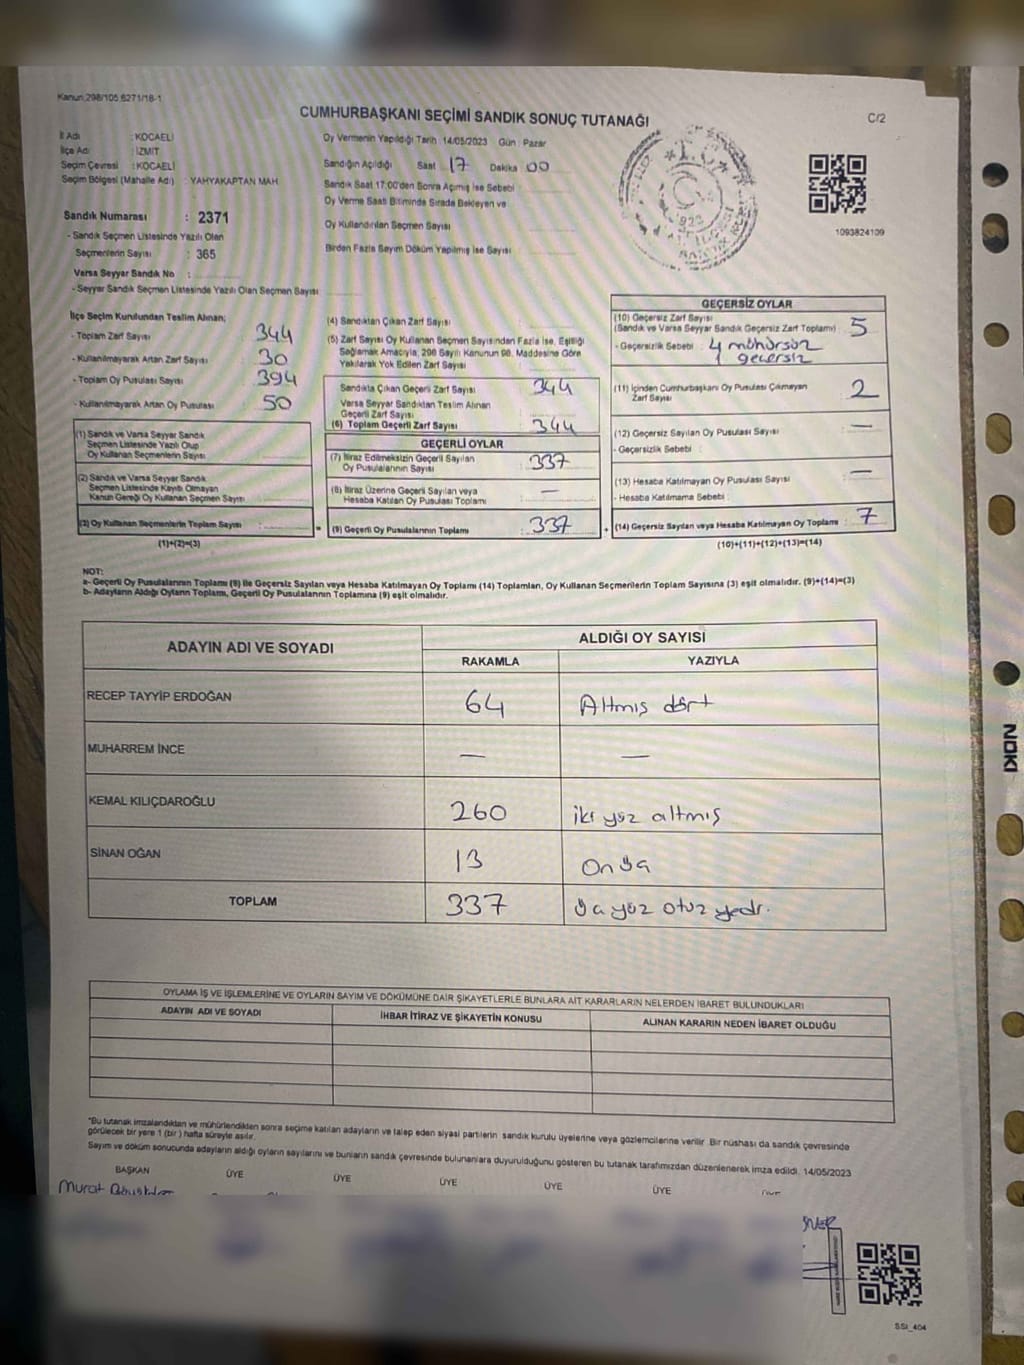 Kanun:298/105,6271/18-1
CUMHURBAŞKANI SEÇİMİ SANDIK SONUÇ TUTANAĞI
C/2
İl Adı : KOCAELİ
İlçe Adı : İZMİT
Seçim Çevresi : KOCAELİ
Seçim Bölgesi (Mahalle Adı) : YAHYAKAPTAN MAH.
Sandık Numarası : 2371
- Sandık Seçmen Listesinde Yazılı Olan
Seçmenlerin Sayısı : 365
Varsa Seyyar Sandık No :
- Seyyar Sandık Seçmen Listesinde Yazılı Olan Seçmen Sayısı:
Oy Vermenin Yapıldığı Tarih 14/05/2023 Gün : Pazar
Sandığın Açıldığı Saat 17 Dakika 00
Sandık Saat 17:00'den Sonra Açılmış İse Sebebi :
Oy Verme Saati Bitiminde Sırada Bekleyen ve
Oy Kullandırılan Seçmen Sayısı
Birden Fazla Sayım Döküm Yapılmış İse Sayısı :
1093824109
İlçe Seçim Kurulundan Teslim Alınan;
- Toplam Zarf Sayısı : 344
- Kullanılmayarak Artan Zarf Sayısı : 30
- Toplam Oy Pusulası Sayısı : 394
- Kullanılmayarak Artan Oy Pusulası : 50
(1) Sandık ve Varsa Seyyar Sandık
Seçmen Listesinde Yazılı Olup
Oy Kullanan Seçmenlerin Sayısı :
(2) Sandık ve Varsa Seyyar Sandık
Seçmen Listesinde Kayıtlı Olmayan
Kanun Gereği Oy Kullanan Seçmen Sayısı :
(3) Oy Kullanan Seçmenlerin Toplam Sayısı :
(1)+(2)=(3)
(4) Sandıktan Çıkan Zarf Sayısı :
(5) Zarf Sayısı Oy Kullanan Seçmen Sayısından Fazla İse, Eşitliği
Sağlamak Amacıyla, 298 Sayılı Kanunun 98. Maddesine Göre
Yakılarak Yok Edilen Zarf Sayısı :
Sandıkta Çıkan Geçerli Zarf Sayısı : 344
Varsa Seyyar Sandıktan Teslim Alınan
Geçerli Zarf Sayısı :
(6) Toplam Geçerli Zarf Sayısı : 344
GEÇERLİ OYLAR
(7) İtiraz Edilmeksizin Geçerli Sayılan
Oy Pusulalarının Sayısı : 337
(8) İtiraz Üzerine Geçerli Sayılan veya
Hesaba Katılan Oy Pusulası Toplamı : —
(9) Geçerli Oy Pusulalarının Toplamı : 337
GEÇERSİZ OYLAR
(10) Geçersiz Zarf Sayısı
(Sandık ve Varsa Seyyar Sandık Geçersiz Zarf Toplamı) : 5
- Geçersizlik Sebebi : 4 mühürsüz
1 geçersiz
(11) İçinden Cumhurbaşkanı Oy Pusulası Çıkmayan
Zarf Sayısı : 2
(12) Geçersiz Sayılan Oy Pusulası Sayısı : —
- Geçersizlik Sebebi :
(13) Hesaba Katılmayan Oy Pusulası Sayısı : —
- Hesaba Katılmama Sebebi :
(14) Geçersiz Sayılan veya Hesaba Katılmayan Oy Toplamı : 7
(10)+(11)+(12)+(13)=(14)
NOT:
a- Geçerli Oy Pusulalarının Toplamı (9) ile Geçersiz Sayılan veya Hesaba Katılmayan Oy Toplamı (14) Toplamları, Oy Kullanan Seçmenlerin Toplam Sayısına (3) eşit olmalıdır. (9)+(14)=(3)
b- Adayların Aldığı Oyların Toplamı, Geçerli Oy Pusulalarının Toplamına (9) eşit olmalıdır.
ADAYIN ADI VE SOYADI
ALDIĞI OY SAYISI
RAKAMLA YAZIYLA
RECEP TAYYİP ERDOĞAN 64 Altmış dört
MUHARREM İNCE — —
KEMAL KILIÇDAROĞLU 260 iki yüz altmış
SİNAN OĞAN 13 On üç
TOPLAM 337 üç yüz otuz yedi.
OYLAMA İŞ VE İŞLEMLERİNE VE OYLARIN SAYIM VE DÖKÜMÜNE DAİR ŞİKAYETLERLE BUNLARA AİT KARARLARIN NELERDEN İBARET BULUNDUKLARI
ADAYIN ADI VE SOYADI İHBAR İTİRAZ VE ŞİKAYETİN KONUSU ALINAN KARARIN NEDEN İBARET OLDUĞU
"Bu tutanak imzalandıktan ve mühürlendikten sonra seçime katılan adayların ve talep eden siyasi partilerin sandık kurulu üyelerine veya gözlemcilerine verilir. Bir nüshası da sandık çevresinde
görülecek bir yere 1 (bir) hafta süreyle asılır.
Sayım ve döküm sonucunda adayların aldığı oyların sayılarını ve bunların sandık çevresinde bulunanlara duyurulduğunu gösteren bu tutanak tarafımızdan düzenlenerek imza edildi. 14/05/2023
BAŞKAN ÜYE ÜYE ÜYE ÜYE ÜYE
Murat
SSI_404
NOKI